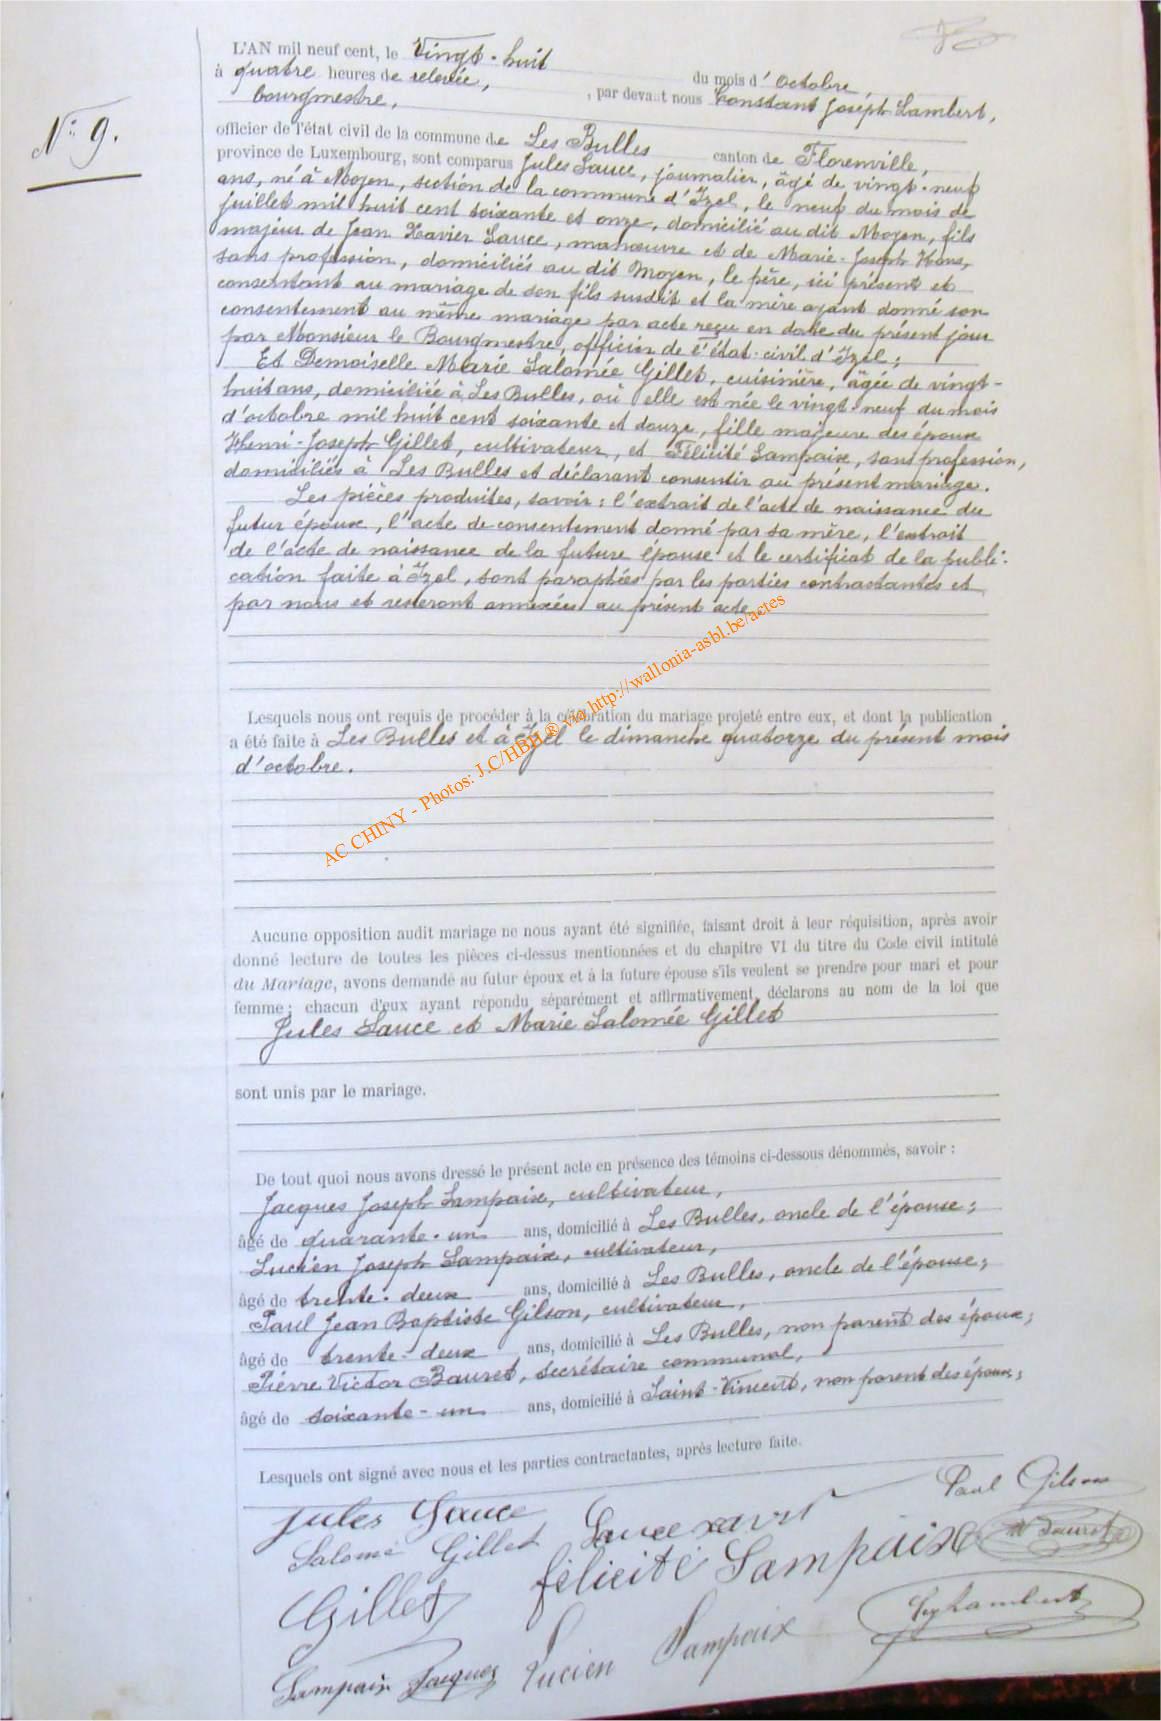 N° 9.
L'AN mil neuf cent, le Vingt-huit du mois d'octobre,
à quatre heures de relevée, , par devant nous Constant Joseph Lambert,
bourgmestre,
officier de l'état civil de la commune de Les Bulles canton de Florenville,
province de Luxembourg, sont comparus Jules Sauce, journalier, âgé de vingt-neuf
ans, né à Moyen, section de la commune d'Izel, le neuf du mois de
juillet mil huit cent soixante et onze, domicilié au dit Moyen, fils
majeur de Jean Xavier Sauce, manœuvre et de Marie-Joseph Hans,
sans profession, domiciliés au dit Moyen, le père, ici présent et
consentant au mariage de son fils susdit et la mère ayant donné son
consentement au même mariage par acte reçu en date du présent jour
par Monsieur le Bourgmestre, officier de l'état-civil d'Izel;
Et Demoiselle Marie Salomée Gillet, cuisinière, âgée de vingt-
huit ans, domiciliée à Les Bulles, où elle est née le vingt-neuf du mois
d'octobre mil huit cent soixante et douze, fille majeure des époux
Henri-Joseph Gillet, cultivateur, et Félicité Lampaix, sans profession,
domiciliés à Les Bulles et déclarant consentir au présent mariage.
Les pièces produites, savoir: l'extrait de l'acte de naissance du
futur époux, l'acte de consentement donné par sa mère, l'extrait
de l'acte de naissance de la future épouse et le certificat de la publi-
cation faite à Izel, sont paraphées par les parties contractantes et
par nous et resteront annexées au présent acte
Lesquels nous ont requis de procéder à la célébration du mariage projeté entre eux, et dont la publication
a été faite à Les Bulles et à Izel le dimanche quatorze du présent mois
d'octobre.
AC CHINY - Photos: J.C/HBH ® via http://wallonia-asbl.be/actes
Aucune opposition audit mariage ne nous ayant été signifiée, faisant droit à leur réquisition, après avoir
donné lecture de toutes les pièces ci-dessus mentionnées et du chapitre VI du titre du Code civil intitulé
du Mariage, avons demandé au futur époux et à la future épouse s'ils veulent se prendre pour mari et pour
femme; chacun d'eux ayant répondu séparément et affirmativement, déclarons au nom de la loi que
Jules Sauce et Marie Salomée Gillet
sont unis par le mariage.
De tout quoi nous avons dressé le présent acte en présence des témoins ci-dessous dénommés, savoir :
Jacques Joseph Lampaix, cultivateur,
âgé de quarante-un ans, domicilié à Les Bulles, oncle de l'épouse;
Lucien Joseph Lampaix, cultivateur,
âgé de trente-deux ans, domicilié à Les Bulles, oncle de l'épouse;
Paul Jean Baptiste Gilson, cultivateur,
âgé de trente-deux ans, domicilié à Les Bulles, non parent des époux;
Pierre Victor Bauret, secrétaire communal,
âgé de soixante-un ans, domicilié à Saint-Vincent, non parent des époux;
Lesquels ont signé avec nous et les parties contractantes, après lecture faite.
Jules Sauce Sauce xavir Paul Gilson
Salomé Gillet félicité Lampaix
Gillet
Lampaix Jacques Lucien Lampaix Lambert